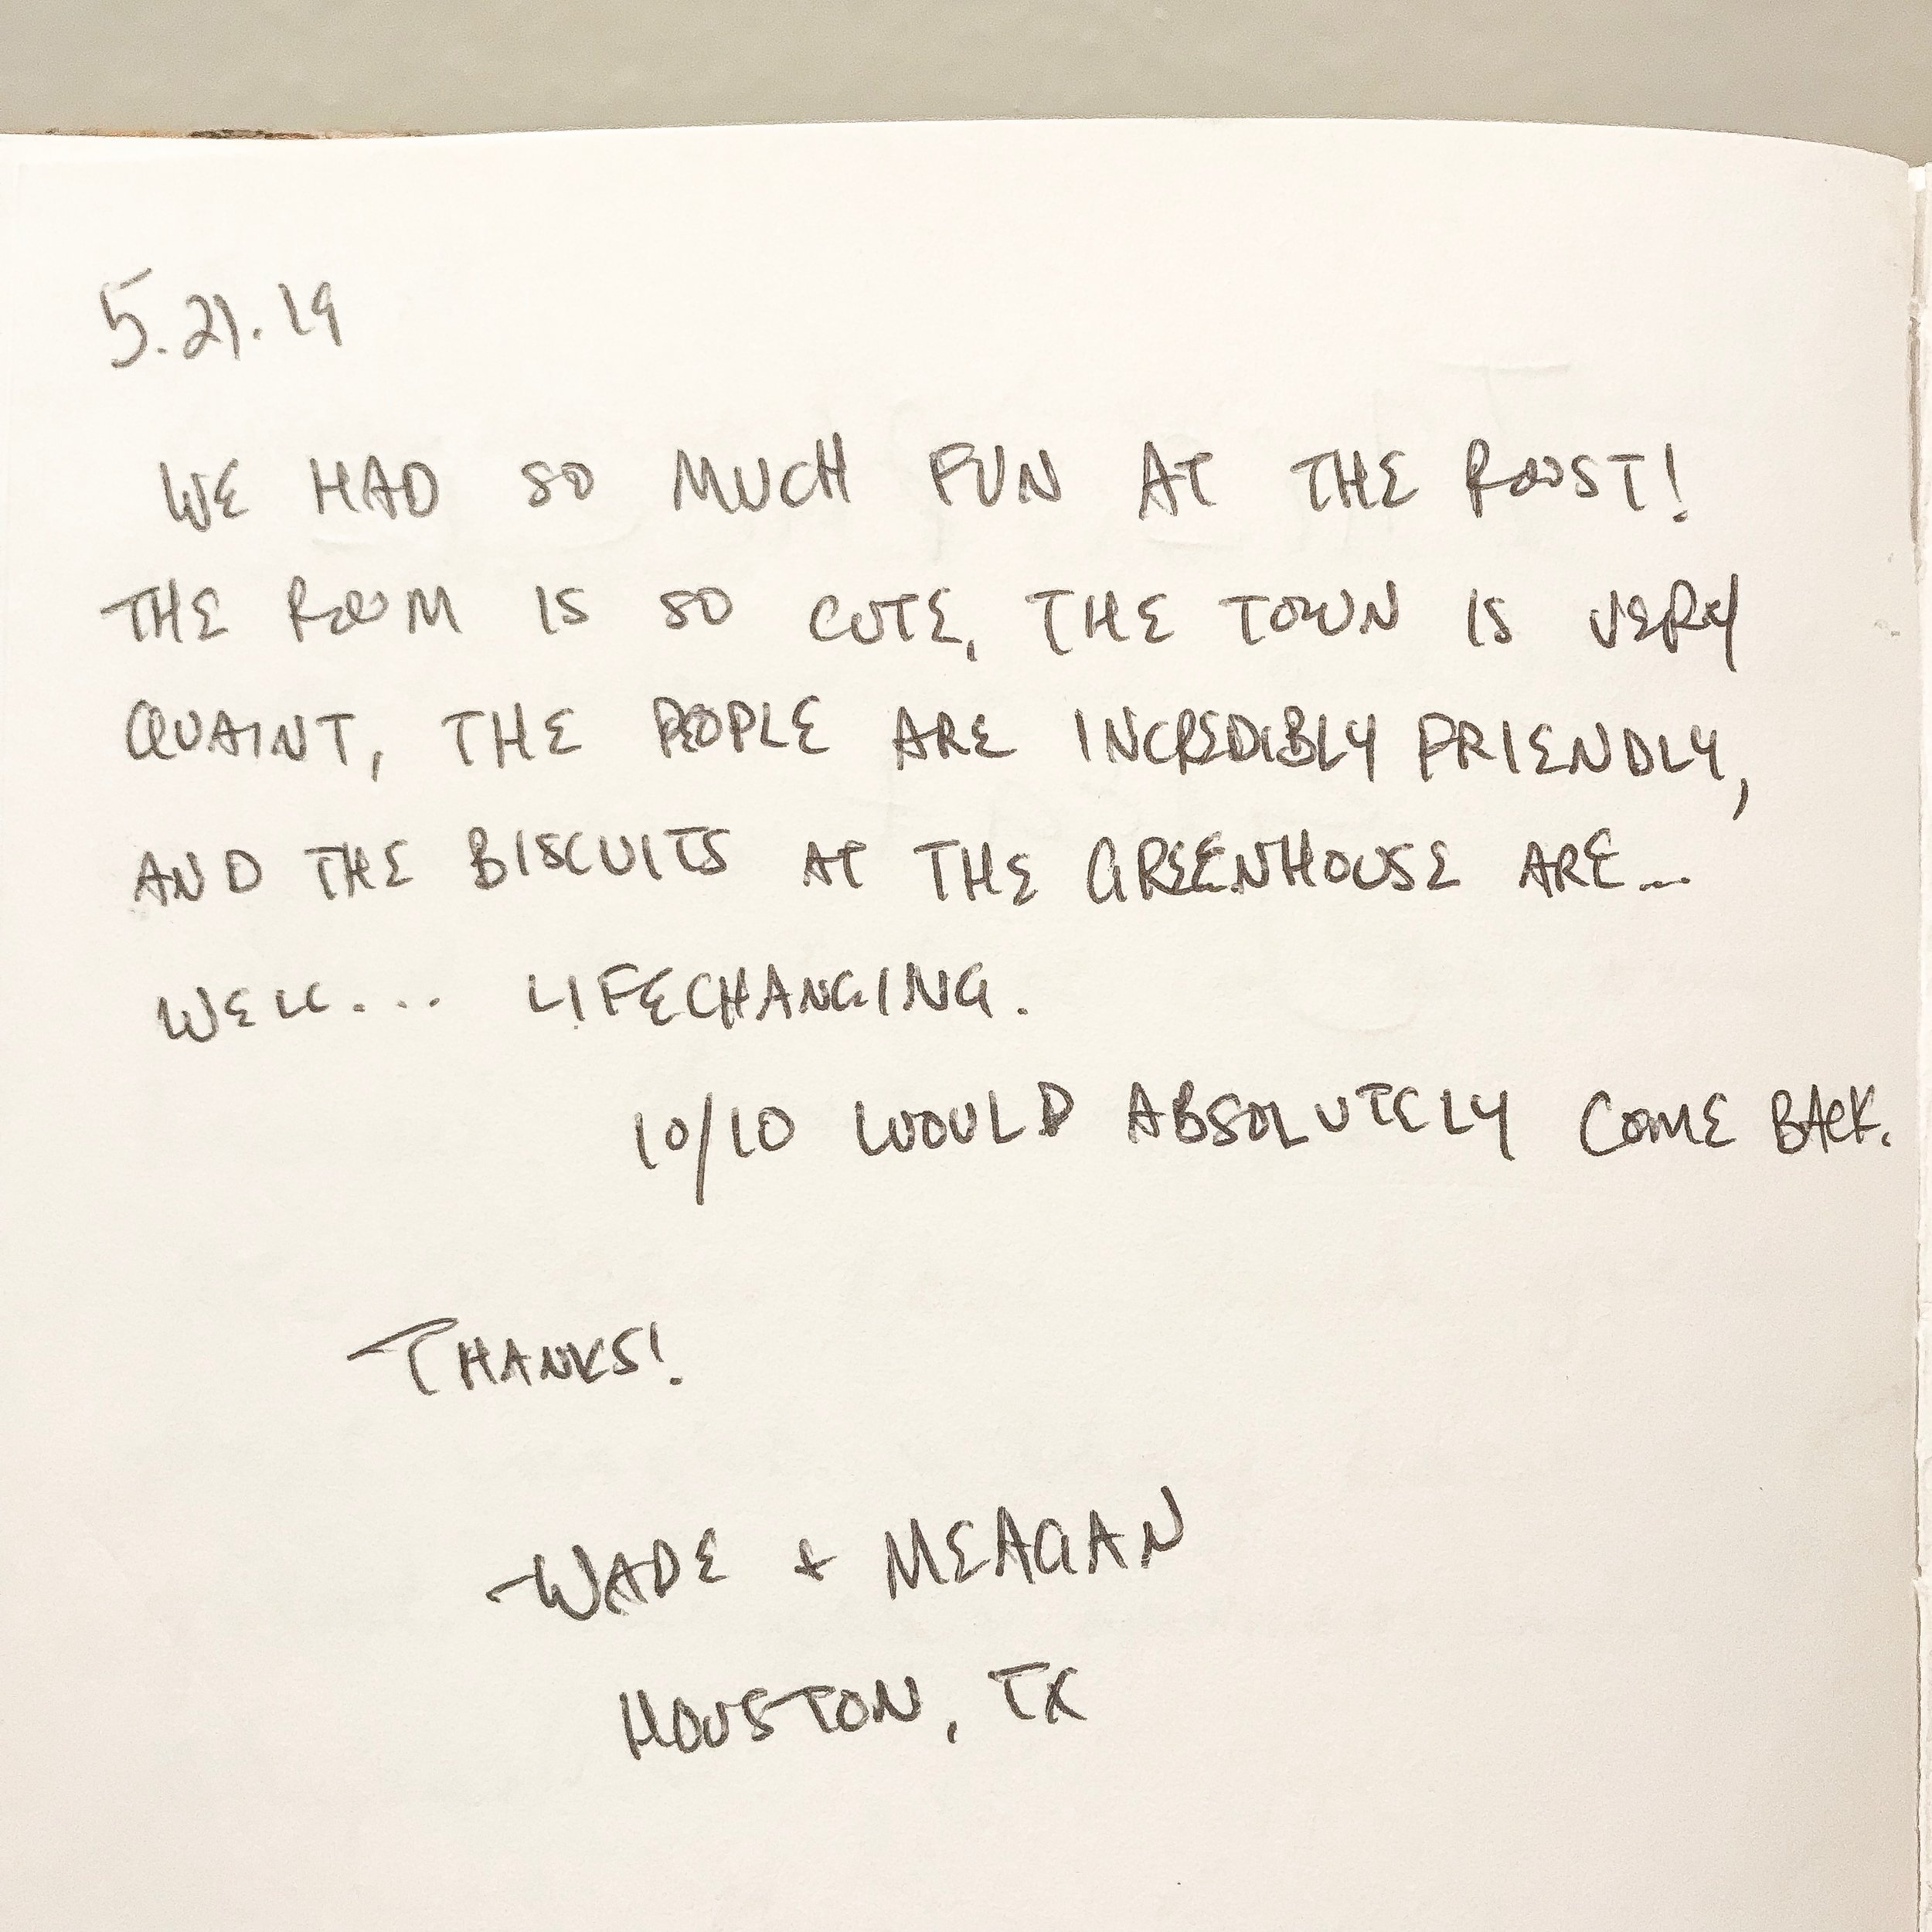 5.21.19
WE HAD SO MUCH FUN AT THE ROOST!
THE ROOM IS SO CUTE, THE TOWN IS VERY
QUAINT, THE PEOPLE ARE INCREDIBLY FRIENDLY,
AND THE BISCUITS AT THE GREENHOUSE ARE...
WELL... LIFECHANGING.
10/10 WOULD ABSOLUTELY COME BACK.
THANKS!
-WADE + MEAGAN
HOUSTON, TX